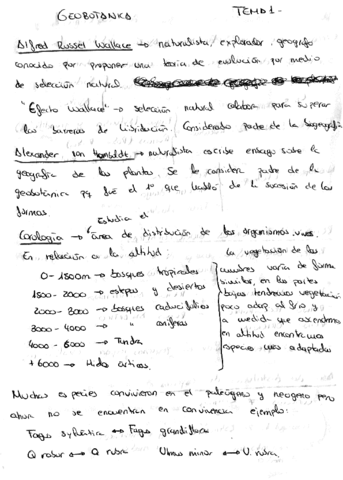 GEOBOTANICA TEMA 1-
Alfred Russel Wallace → naturalista, explorador, geografo
conocido por proponer una teoria de evolución por medio
de selección natural
"Efecto Wallace" → selección natural colabora para superar
las barreras de hibridación. Considerado padre de la biogeografia
Alexander von Humboldt → naturalista escribe ensayo sobre la
geografia de las plantas. Se le considera padre de la
geobotánica pq fue el 1º que habló de la sucesión de las
formas.
Estudia el
Corologia → área de distribución de los organismos vivos.
En relación a la altitud:
0-1500m → bosques tropicales
1500-2000 → estepas y desiertos
2000-3000 → bosques caducifolios
3000-4000 → " coniferas
4000-6000 → Tundra
+6000 → Hielo
La vegetación de las
cumbres varia de forma
similar, en las partes
bajas tendremos vegetación
poco adap al frio y
a medida que ascendemos
en altitud encontramos
especies mas adaptadas
Muchas especies convivieron en el paleógeno y neogeno pero
ahora no se encuentran en convivencia ejemplo:
Fagus sylvatica ↔ Fagus grandifolia
Q robur ↔ Q rubra Ulmus minor ↔ U. rubra